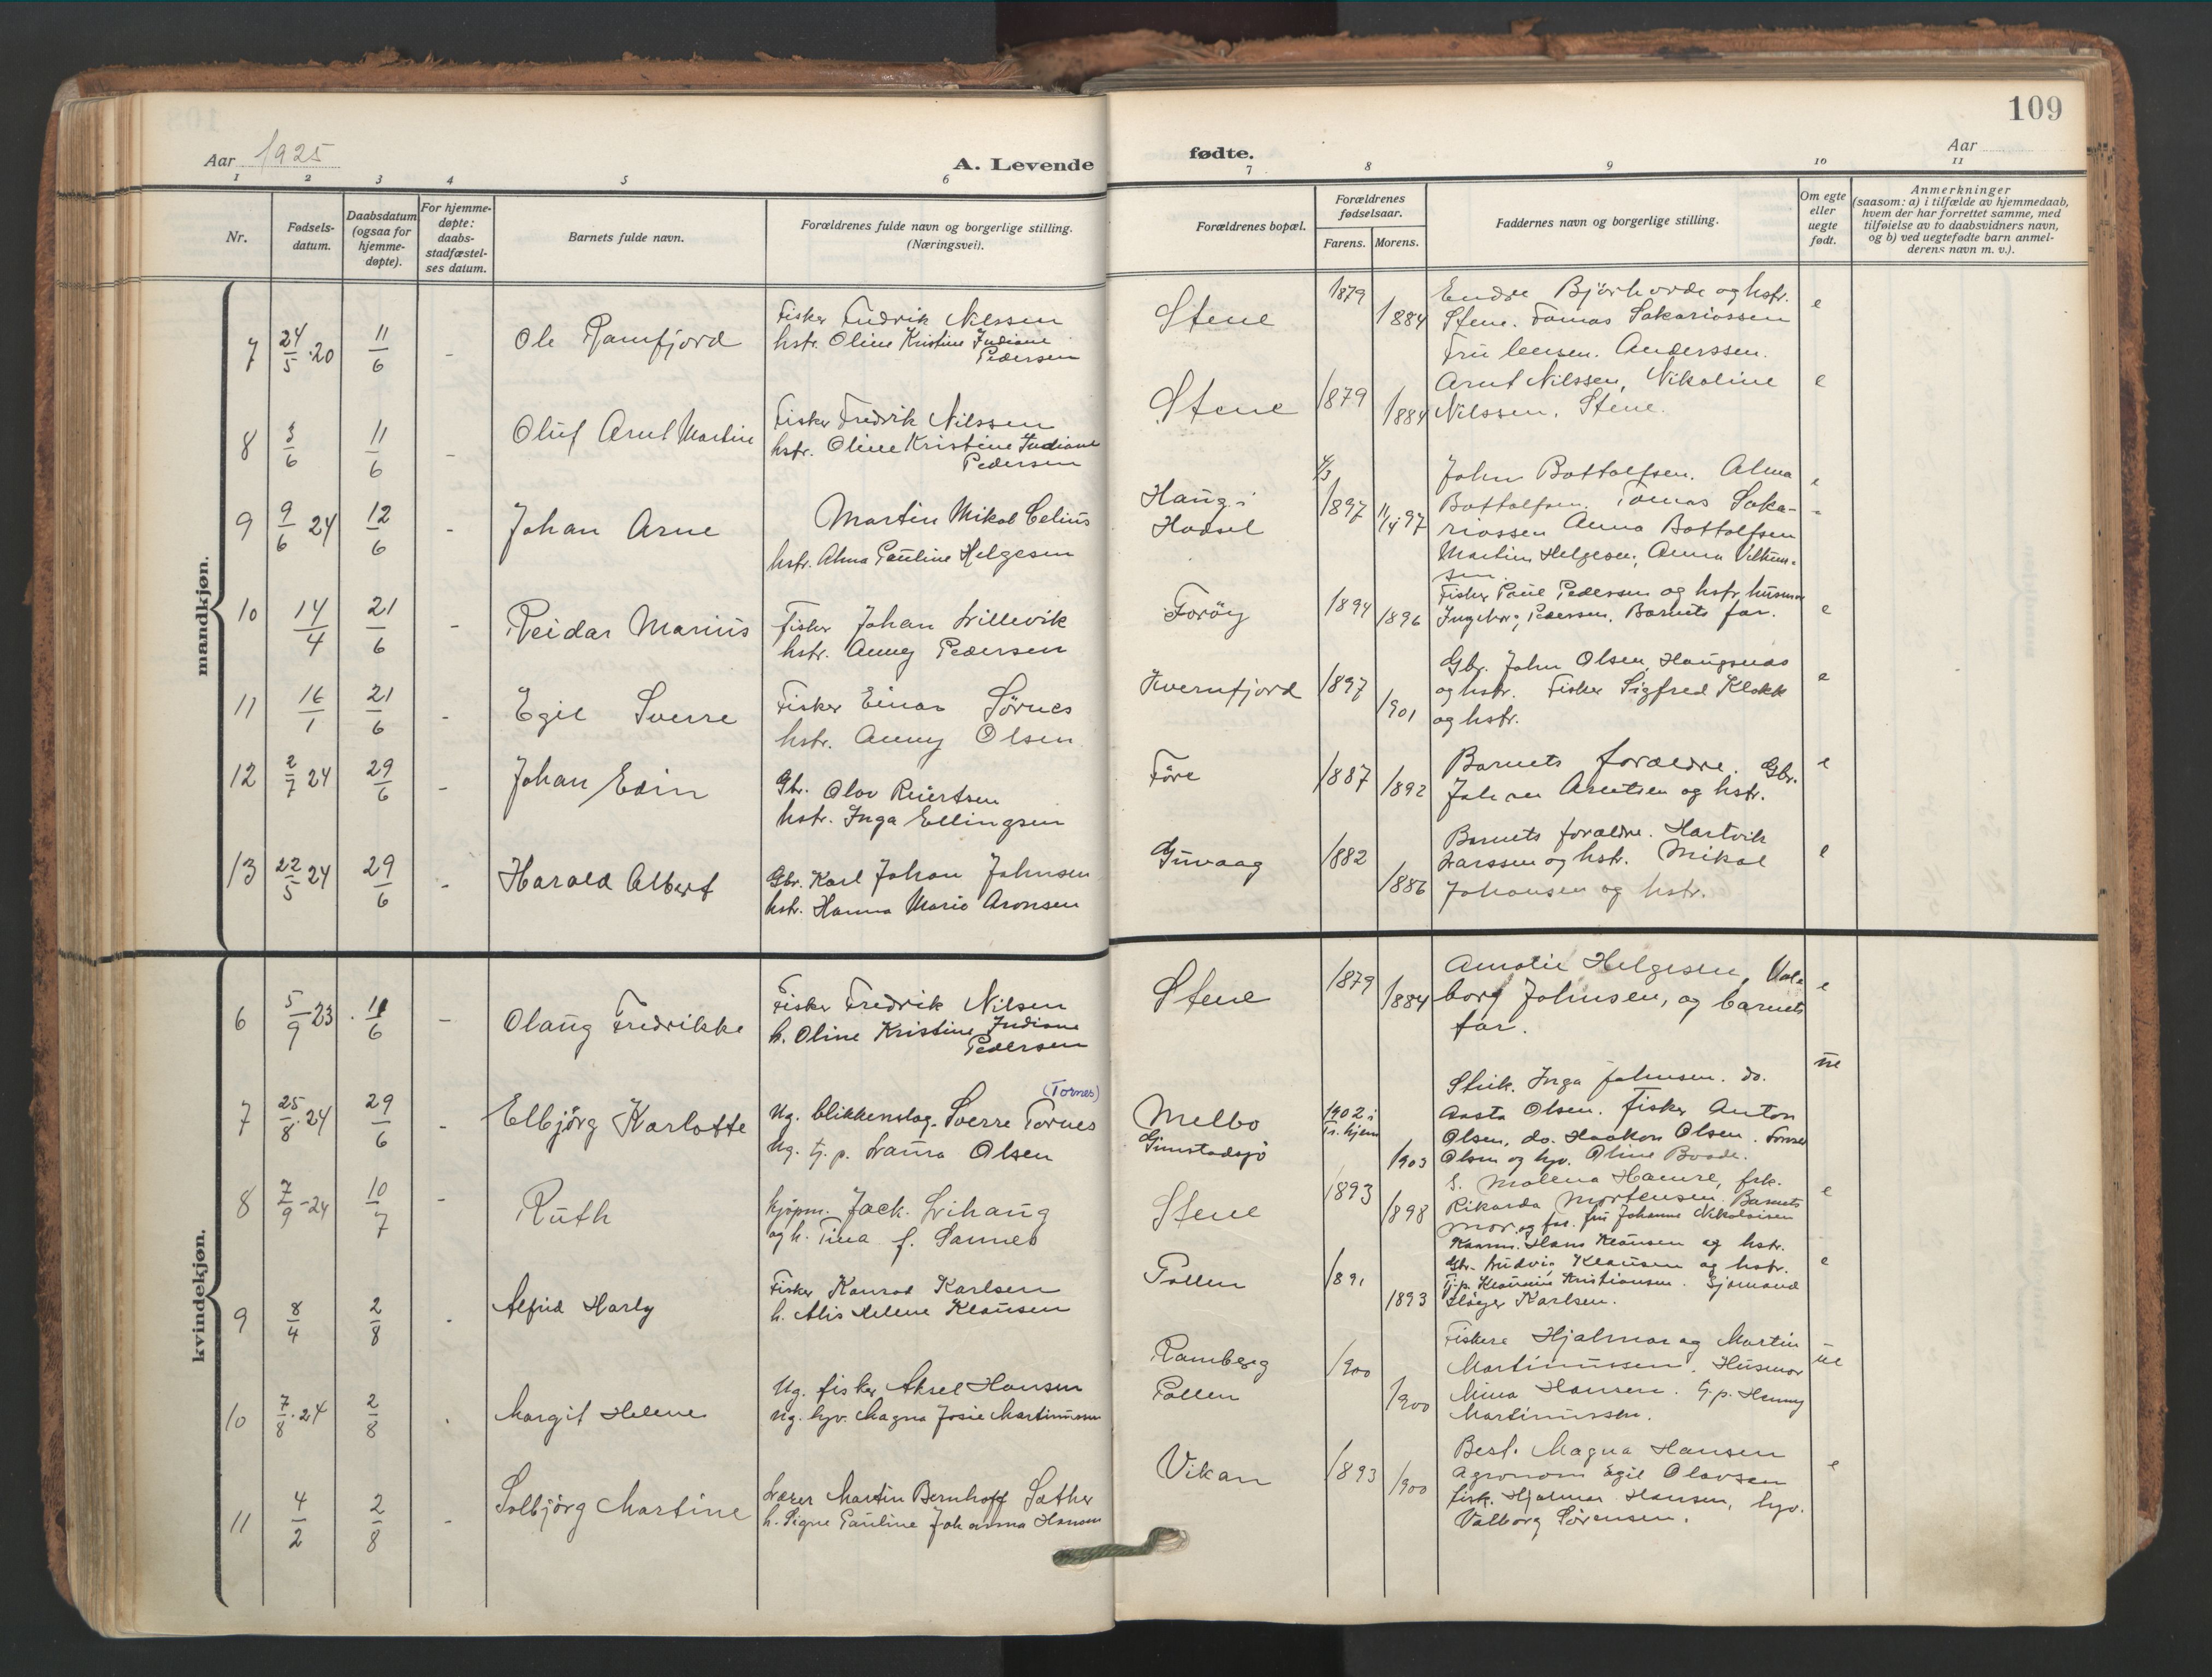 109
Aar 1925
A. Levende fødte.
Aar
1 2 3 4 5 6 7 8 9 10 11
Nr.
Fødsels-
datum.
Daabsdatum
(ogsaa for
hjemme-
døpte).
For hjemme-
døpte:
daabs-
stadfæstel-
ses datum.
Barnets fulde navn.
Forældrenes fulde navn og borgerlige stilling.
(Næringsvei).
Forældrenes bopæl.
Forældrenes
fødselsaar.
Farens. Morens.
Faddernes navn og borgerlige stilling.
Om egte
eller
uegte
født.
Anmerkninger
(saasom: a) i tilfælde av hjemmedaab,
hvem der har forrettet samme, med
tilføielse av to daabsvidners navn,
og b) ved uegtefødte barn anmel-
derens navn m. v.).
mandkjøn.
7 24/5 20 11/6 - Ole Ramfjord
Fisker Fredrik Nilssen
hstr. Oline Kristine Indiane
Pedersen
Stene 1879 1884
Endre Bjørhovde og hstr.
Stene. Tomas Sakariassen
Fru Anderssen.
e
8 3/6 11/6 - Oluf Arnt Martin
Fisker Fredrik Nilssen
hstr. Oline Kristine Indiane
Pedersen
Stene 1879 1884
Arnt Nilssen, Nikoline
Nilssen, Stene.
e
9 9/6 24 12/6 - Johan Arne
Martin Mikal Celius
hstr. Alma Pauline Helgesen
Haug i
Hadsel
4/3 1897 11/4 97
John Bottolfsen. Alma
Bottolfsen. Tomas Saka-
riassen Anna Bottolfsen
Martin Helgesen, Anna Vilhem-
sen
e
10 14/4 21/6 - Reidar Marius
Fisker Johan Lillevik
hstr. Anny Pedersen
Forøy 1894 1896
Fisker Paul Pedersen og hstr. husmor
Ingeborg Pedersen. Barnets far.
e
11 16/1 21/6 - Egil Sverre
Fisker Einar Sørnes
hstr. Anny Olsen
Kvernfjord 1897 1901
Gbr. John Olsen, Haugsnes
og hstr. Fisker Sigfred Klokk
og hstr.
e
12 2/7 24 29/6 - Johan Edin
Gbr. Olav Reiertsen
hstr. Inga Ellingsen
Føre 1887 1892
Barnets forældre. Gbr.
Johan Arntsen og hstr.
e
13 22/5 24 29/6 - Harald Albert
Gbr. Karl Johan Johnsen
hstr. Hanna Marie Aronsen
Guvaag 1882 1886
Barnets forældre. Hartvik
Larssen og hstr. Mikal
Johansen og hstr.
e
kvindekjøn.
6 5/9 23 11/6 - Olaug Fredrikke
Fisker Fredrik Nilsen
h. Oline Kristine Indiane
Pedersen
Stene 1879 1884
Amalie Helgesen, Val-
borg Johnsen, og barnets
far.
e
7 25/8 24 29/6 - Elbjørg Karlotte
(Tornes)
Ug. blikkenslag. Sverre Tornes
Ug. tj. p. Laura Olsen
Melbo
Gimstadsjø
1902 i
Tr.hjem
1903
Inga Johnsen. do.
Aasta Olsen. Fisker Anton
Olsen, do. Haakon Olsen.
Olsen og hyv. Oline Boode.
ue
8 7/9 - 24 10/7 - Ruth
kjøpm. Jack. Lihaug
og h. Tina f. Sannes
Stene 1893 1898
S. Malena Hamre, frk.
Rikarda Mortensen. Barnets
mor og far. fru Johanne Nikolaisen
e
9 8/4 2/8 - Alfrid Harly
Fisker Konrad Karlsen
h. Alis Helene Klausen
Pollen 1891 1893
Hans Klausen og hstr.
Gbr. Ludvig Klausen og hstr.
Tj.p. Klausine Kristiansen. Sjømand
Høyer Karlsen.
e
10 7/8 24 2/8 - Margit Helene
Ug. fisker Aksel Hansen
Ug. hyv. Magna Josie Martinussen
Ramberg
Pollen
1900 1900
Fiskere Hjalmar og Martin
Martinussen. Husmor
Mina Hansen. Tj.p. Henny
Martinussen.
ue
11 4/2 2/8 - Solbjørg Martine
Lærer Martin Bernhoff Sæther
h. Signe Pauline Johanna Hansen
Vikan 1893 1900
Best. Magna Hansen
Agronom Egil Olavsen
fisk. Hjalmar Hansen, hyv.
Valborg Sørensen.
e